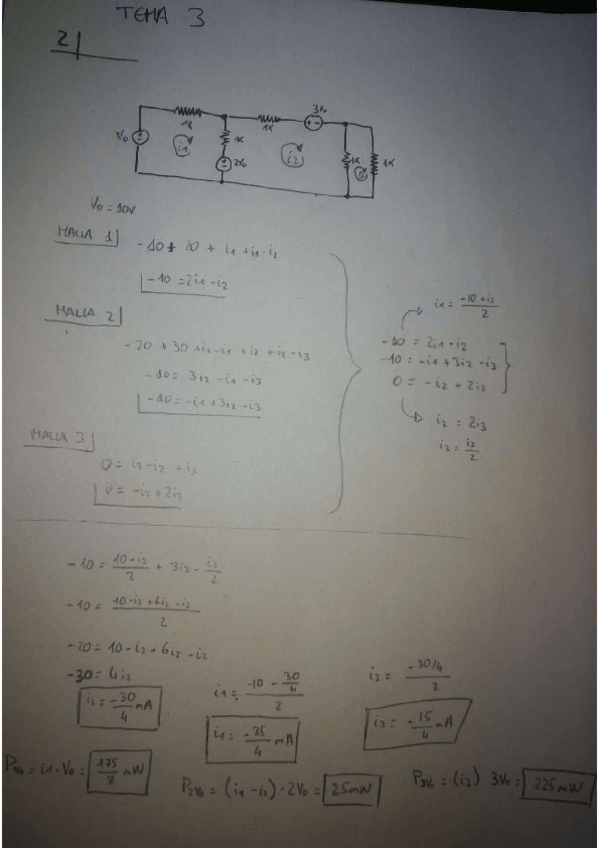 TEMA 3
2|
1k
1k
3V₀
+ -
V₀
i₁
1K
2V₀
i₂
1K
1K
V₀ = 10V
MALLA 1|
-10 + 20 + i₁ + i₁ - i₂
-10 = 2i₁ - i₂
MALLA 2|
-20 + 30 + i₂ - i₁ + i₂ + i₂ - i₃
-10 = 3i₂ - i₁ - i₃
-10 = -i₁ + 3i₂ - i₃
MALLA 3|
0 = i₃ - i₂ + i₃
0 = -i₂ + 2i₃
i₁ = (-10 + i₂)/2
-10 = 2i₁ - i₂
-10 = -i₁ + 3i₂ - i₃
0 = -i₂ + 2i₃
i₂ = 2i₃
i₃ = i₂/2
-10 = (10 - i₂)/2 + 3i₂ - i₂/2
-10 = (10 - i₂ + 6i₂ - i₂)/2
-20 = 10 - i₂ + 6i₂ - i₂
-30 = 4i₂
i₂ = -30/4 mA
i₁ = (-10 - 30/4)/2
i₁ = -35/4 mA
i₃ = (-30/4)/2
i₃ = -15/4 mA
P_V₀ = i₁ · V₀ = 175/2 mW
P_2V₀ = (i₁ - i₂) · 2V₀ = 25mW
P_3V₀ = (i₂) 3V₀ = 225mW